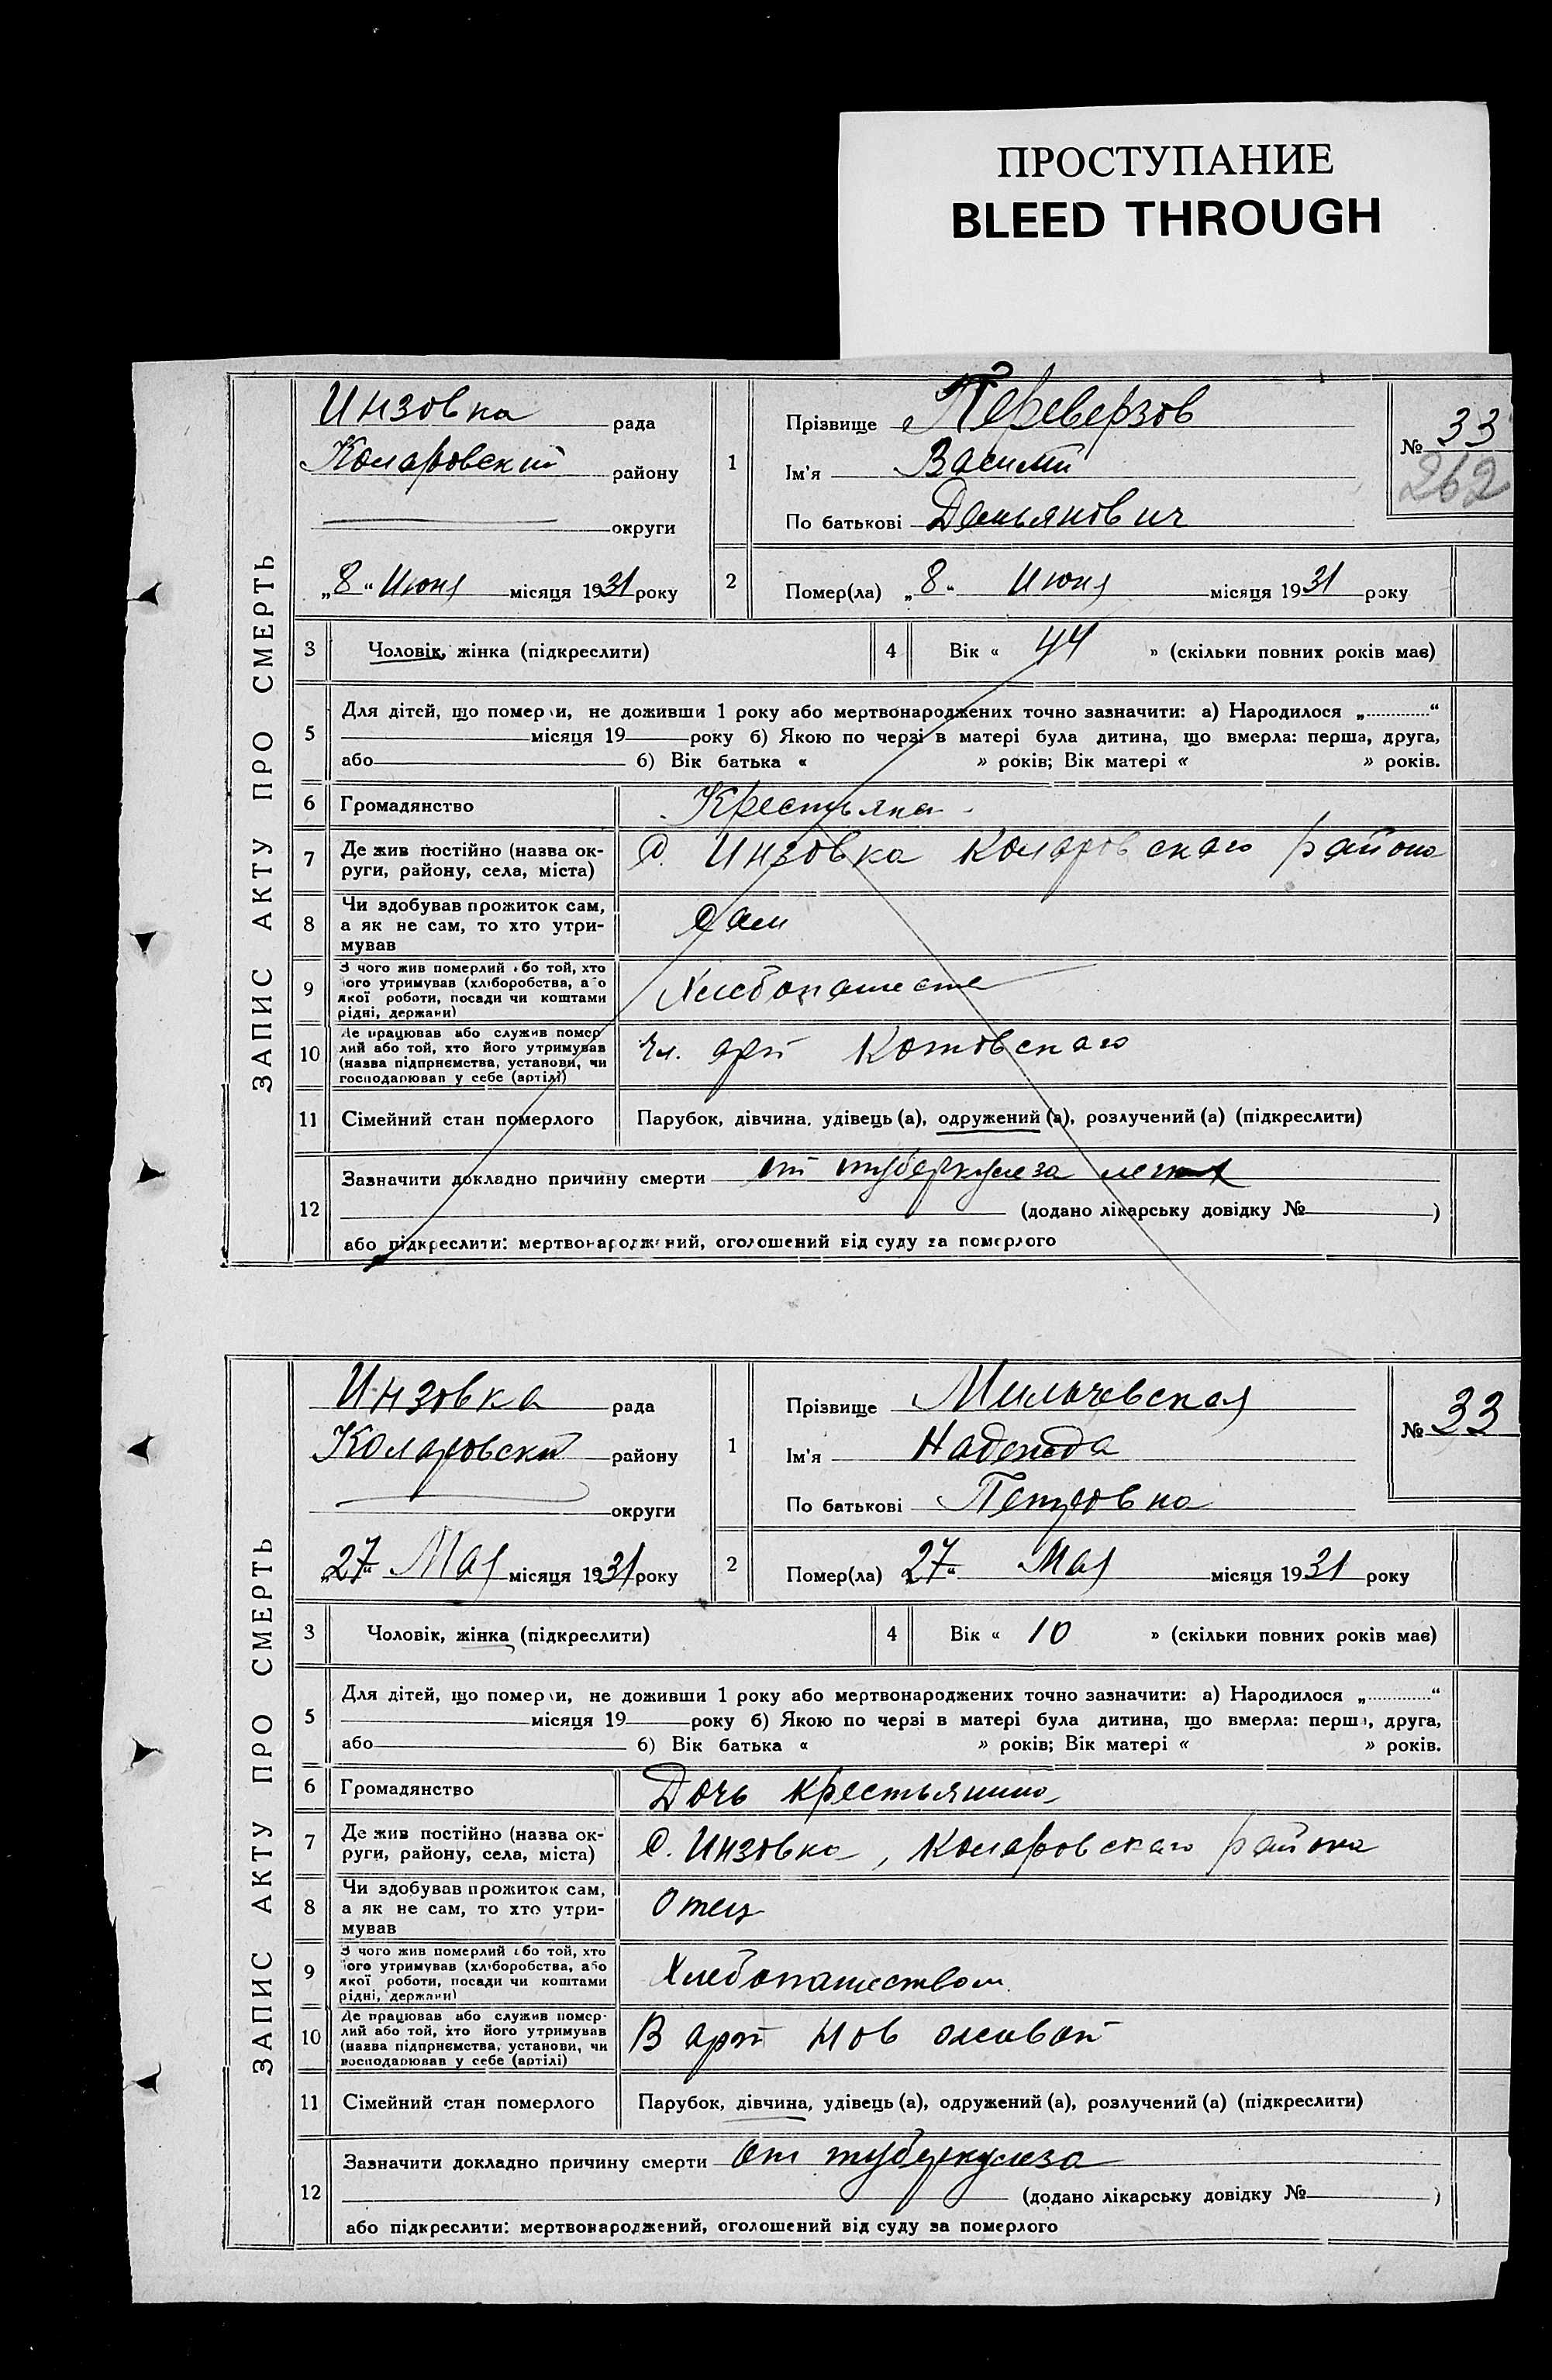 ПРОСТУПАНИЕ
BLEED THROUGH
ЗАПИС АКТУ ПРО СМЕРТЬ
Инзовка рада
Коларовский району
округи
„8“ Июня місяця 1931 року
1
Прізвище Переверзов
Ім'я Василий
По батькові Демьянович
№ 33
262
2 Помер(ла) „8“ Июня місяця 1931 року
3 Чоловік, жінка (підкреслити)
4 Вік « 44 » (скільки повних років має)
5 Для дітей, що померли, не доживши 1 року або мертвонароджених точно зазначити: а) Народилося „.............“
місяця 19 року б) Якою по черзі в матері була дитина, що вмерла: перша, друга,
або б) Вік батька « » років; Вік матері « » років.
6 Громадянство Крестьяна
7 Де жив постійно (назва ок-
руги, району, села, міста) С. Инзовка Коларовскаго района
8 Чи здобував прожиток сам,
а як не сам, то хто утри-
мував Сам
9 З чого жив померлий або той, хто
його утримував (хліборобства, або
якої роботи, посади чи коштами
рідні, держави)
10 Де працював або служив помер-
лий або той, хто його утримував
(назва підпрнємства, установи, чи
господарював у себе (артілі) Чл. арт Котовскаго
11 Сімейний стан померлого Парубок, дівчина, удівець (а), одружений (а), розлучений (а) (підкреслити)
12 Зазначити докладно причину смерти от туберкулеза легких
(додано лікарську довідку № )
або підкреслити: мертвонароджений, оголошений від суду за померлого
ЗАПИС АКТУ ПРО СМЕРТЬ
Инзовка рада
Коларовский району
округи
„27“ Мая місяця 1931 року
1
Прізвище Мильчевская
Ім'я Надежда
По батькові Петровна
№ 33
2 Помер(ла) 27“ Мая місяця 1931 року
3 Чоловік, жінка (підкреслити)
4 Вік « 10 » (скільки повних років має)
5 Для дітей, що померли, не доживши 1 року або мертвонароджених точно зазначити: а) Народилося „.............“
місяця 19 року б) Якою по черзі в матері була дитина, що вмерла: перша, друга,
або б) Вік батька « » років; Вік матері « » років.
6 Громадянство Дочь крестьянина
7 Де жив постійно (назва ок-
руги, району, села, міста) С. Инзовка, Коларовскаго района
8 Чи здобував прожиток сам,
а як не сам, то хто утри-
мував Отец
9 З чого жив померлий або той, хто
його утримував (хліборобства, або
якої роботи, посади чи коштами
рідні, держави) Хлебопашеством
10 Де працював або служив помер-
лий або той, хто його утримував
(назва підпрнємства, установи, чи
господарював у себе (артілі) В арт Нов
11 Сімейний стан померлого Парубок, дівчина, удівець (а), одружений (а), розлучений (а) (підкреслити)
12 Зазначити докладно причину смерти от туберкулеза
(додано лікарську довідку № )
або підкреслити: мертвонароджений, оголошений від суду за померлого